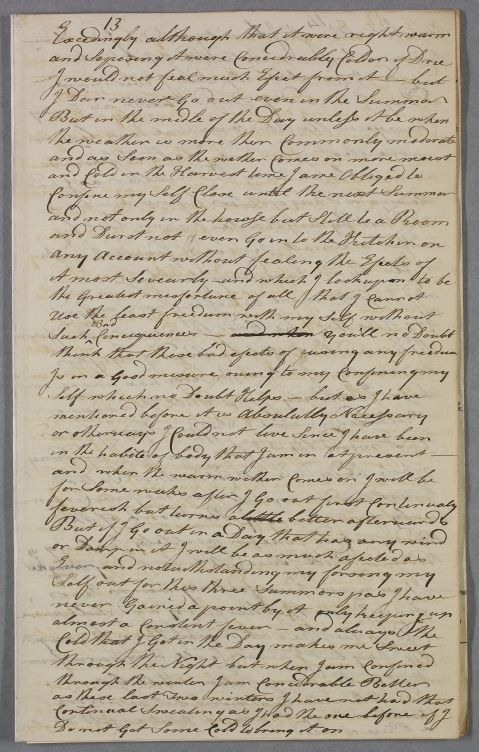 13
Excedingly although that it were right warm
and Soposing it were Considrably Colder if Dree
I would not feal much Efect from it — but
I Dar never Go out even in the Summor
But in the midle of the Day unless it be when
the weather is more then Commonly moderate
and as Soon as the wether Comes on more moist
and Cold in the Harvest time I ame Obliged to
Confine my Self Close until the next Summor
and not only in the howse but Still to a Room
and Durst not even Go in to the Kitchin on
any Account without fealing the Efects of
it most Sevearly — and which I look upon to be
the Greatest misfortune of all that I Cannot
Use the least freedum with my Self without
Such Bad Concequences — and when you'll no Doubt
think that these bad efects of using any freedum
Is in a Good mesure owing to my Confining my
Self which no Doubt Helps — but as I have
mentioned before it is Absulutly Necessary
or otherways I Could not live Since I have been
in the habite of body that I am in at present —
and when the warm wether Comes on I will be
for Some weeks after I Go out first Continualy
feverish but turns a little better afterwards
But if I Go out in a Day that has any wind
or Damp in it I will be as much afected as
Ever and notwithstanding my forsing my
Self out for this three Summors past I have
never Gained a point by it only keeping up
almost a Constent fever — and always the
Cold that I Got in the Day makes me Sweet
through the Night but when I am Confined
through the winter I am Considrable Better
as these last two winters I have not had that
Continual Sweating as I had the one before if I
Do not Get Some Cold to bring it on